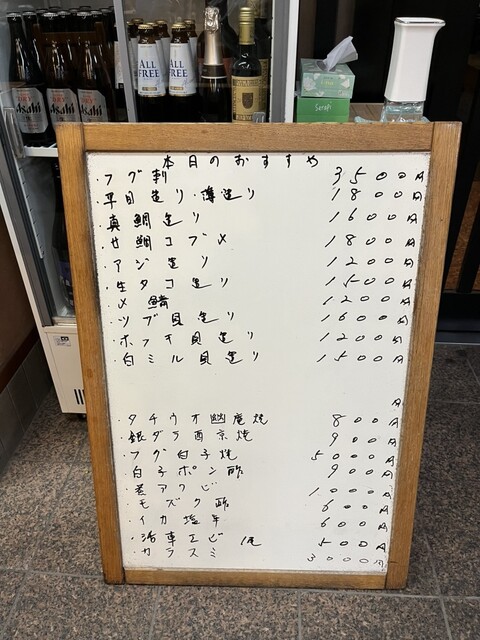 ALL
FREE
ALL
FREE
Asahi
Asahi
Asahi
本日のおすすめ
・フグ刺 3500円
・平目造り・薄造り 1800円
・真鯛造り 1600円
・甘鯛コブ〆 1800円
・アジ造り 1200円
・生タコ造り 1500円
・〆鯖 1200円
・ツブ貝造り 1600円
・ホッキ貝造り 1200円
・白ミル貝造り 1500円
円
・タチウオ幽庵焼 800円
・銀ダラ西京焼 900円
・フグ白子焼 5000円
・白子ポン酢 900円
・蒸アワビ 1000円
・モズク酢 600円
・イカ塩辛 600円
・活車エビ 1尾 500円
・カラスミ 3000円